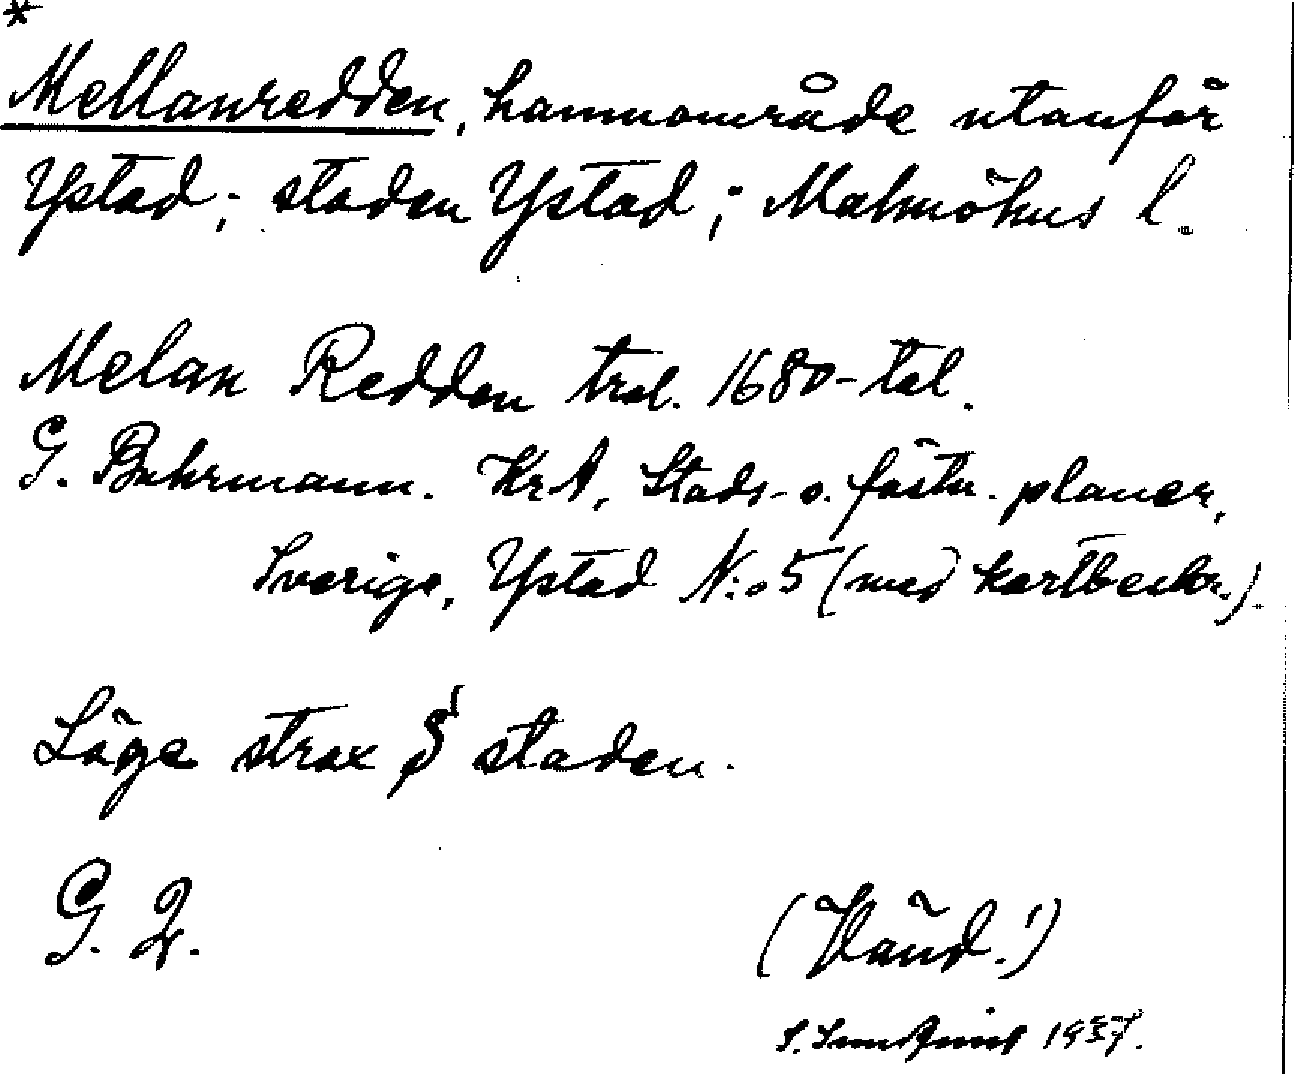 *
Mellanredden, hamnområde utanför
Ystad; staden Ystad; Malmöhus l.
Melan Redden trol. 1680-tal.
G. Buhrmann. KrA, Stads- o. fästn. planer,
Sverige, Ystad N:o 5 (med kartbeskr.).
Läge strax S staden.
G. 2.
(Vänd!)
S. 1937.